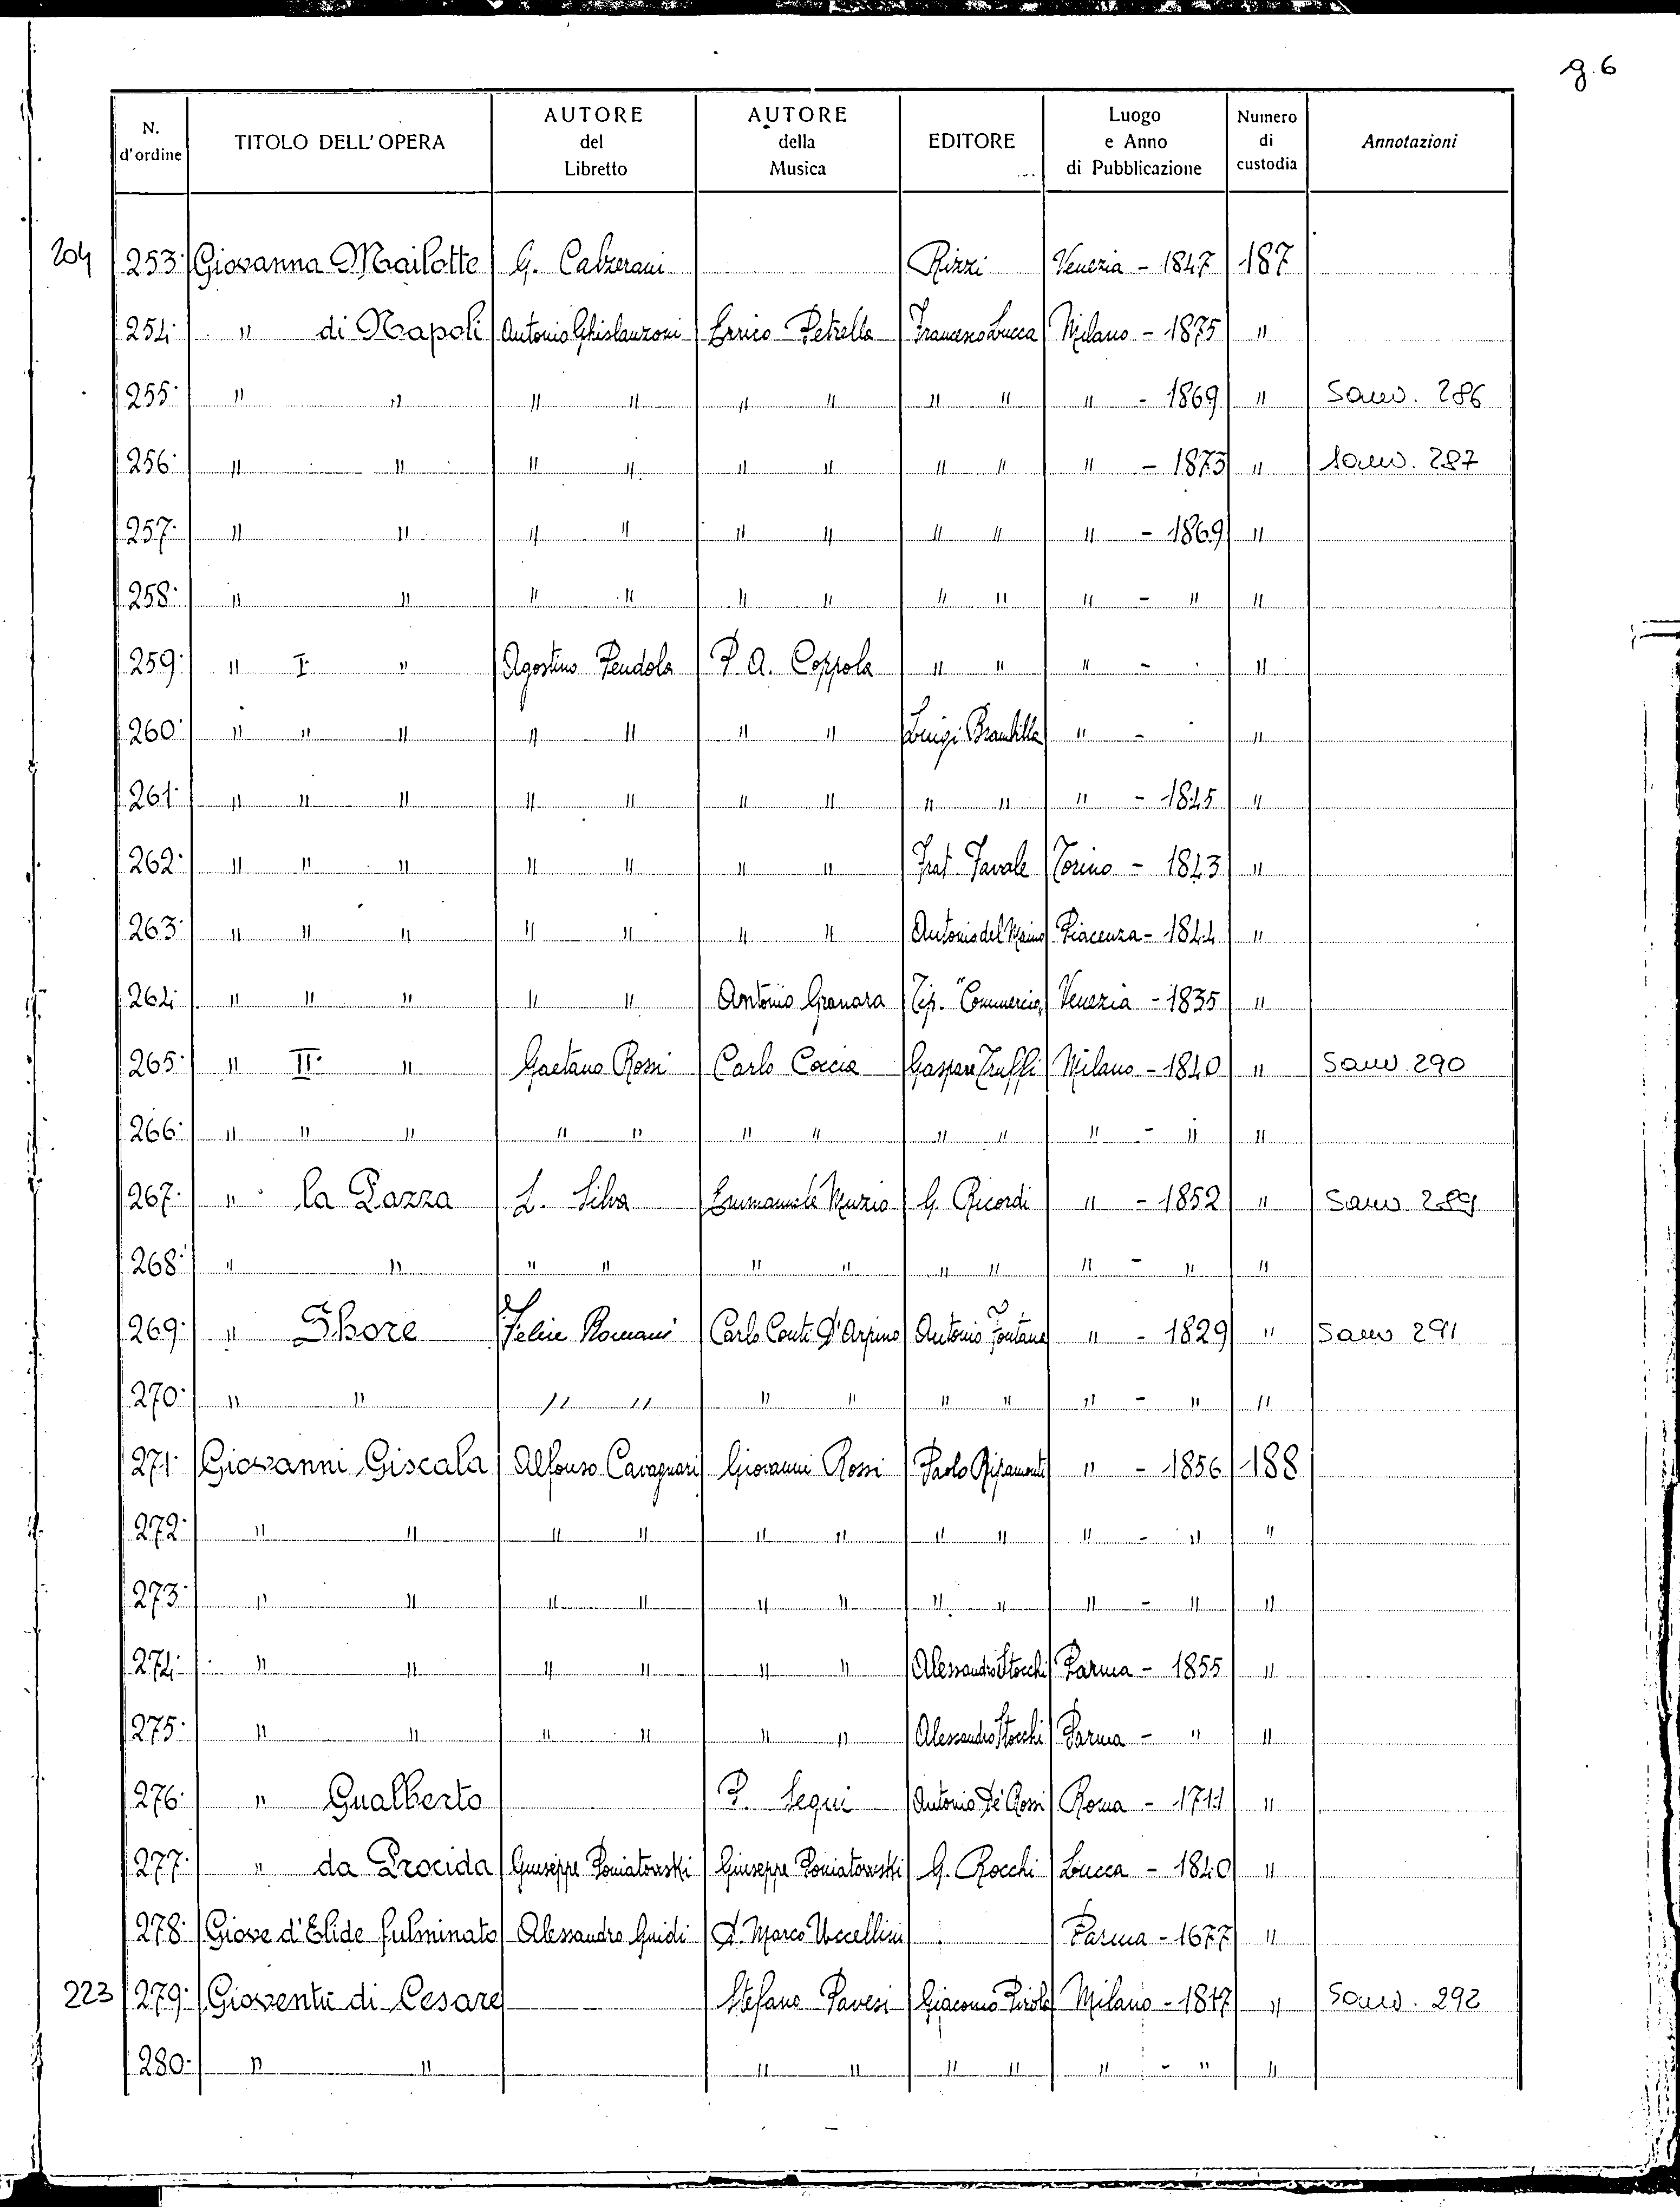 g. 6
N. d'ordine TITOLO DELL' OPERA AUTORE del Libretto AUTORE della Musica EDITORE Luogo e Anno di Pubblicazione Numero di custodia Annotazioni
204 253. Giovanna Mailotte G. Calzerani Rizzi Venezia - 1847 187
254. " di Napoli Antonio Ghislanzoni Errico Petrella Francesco Lucca Milano - 1875 "
255. " " " " " " " " " - 1869 " Sauv. 286
256. " " " " " " " " " - 1873 " Sauv. 287
257. " " " " " " " " " - 1869 "
258. " " " " " " " " " - " "
259. " I. " Agostino Pendola P. A. Coppola " " " - "
260. " " " " " " " Luigi Brambilla " - "
261. " " " " " " " " " " - 1845 "
262. " " " " " " " Frat. Favale Torino - 1843 "
263. " " " " " " " Antonio del Maino Piacenza - 1844 "
264. " " " " " Antonio Granara Tip. "Commercio" Venezia - 1835 "
265. " II. " Gaetano Rossi Carlo Coccia Gaspare Truffi Milano - 1840 " Sauv. 290
266. " " " " " " " " " " - " "
267. " la Pazza L. Silva Emmanuele Muzio G. Ricordi " - 1852 " Sauv 289
268. " " " " " " " " " - " "
269. " Shore Felice Romani Carlo Conti D'Arpino Antonio Fontana " - 1829 " Sauv 291
270. " " " " " " " " " - " "
271. Giovanni Giscala Alfonso Cavagnari Giovanni Rossi Paolo Ripamonti " - 1856 188
272. " " " " " " " " " - " "
273. " " " " " " " " " - " "
274. " " " " " " Alessandro Stocchi Parma - 1855 "
275. " " " " " " Alessandro Stocchi Parma - " "
276. " Gualberto P. Segui Antonio De' Rossi Roma - 1711 "
277. " da Procida Giuseppe Poniatowski Giuseppe Poniatowski G. Rocchi Lucca - 1840 "
278. Giove d'Elide fulminato Alessandro Guidi D. Marco Uccellini Parma - 1677 "
223 279. Gioventù di Cesare Stefano Pavesi Giacomo Pirola Milano - 1817 " Sauv. 292
280. " " " " " " " - " "